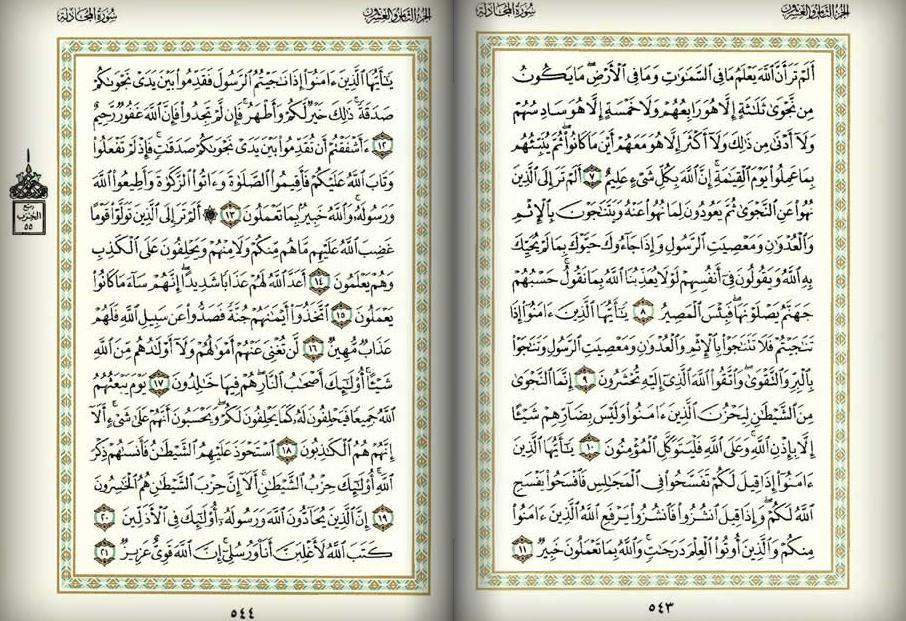 الجزء الثامن والعشرون
سورة المجادلة
أَلَمْ تَرَ أَنَّ ٱللَّهَ يَعْلَمُ مَا فِى ٱلسَّمَٰوَٰتِ وَمَا فِى ٱلْأَرْضِ ۖ مَا يَكُونُ
مِن نَّجْوَىٰ ثَلَٰثَةٍ إِلَّا هُوَ رَابِعُهُمْ وَلَا خَمْسَةٍ إِلَّا هُوَ سَادِسُهُمْ
وَلَآ أَدْنَىٰ مِن ذَٰلِكَ وَلَآ أَكْثَرَ إِلَّا هُوَ مَعَهُمْ أَيْنَ مَا كَانُوا۟ ۖ ثُمَّ يُنَبِّئُهُم
بِمَا عَمِلُوا۟ يَوْمَ ٱلْقِيَٰمَةِ ۚ إِنَّ ٱللَّهَ بِكُلِّ شَىْءٍ عَلِيمٌ ٧ أَلَمْ تَرَ إِلَى ٱلَّذِينَ
نُهُوا۟ عَنِ ٱلنَّجْوَىٰ ثُمَّ يَعُودُونَ لِمَا نُهُوا۟ عَنْهُ وَيَتَنَٰجَوْنَ بِٱلْإِثْمِ
وَٱلْعُدْوَٰنِ وَمَعْصِيَتِ ٱلرَّسُولِ وَإِذَا جَآءُوكَ حَيَّوْكَ بِمَا لَمْ يُحَيِّكَ
بِهِ ٱللَّهُ وَيَقُولُونَ فِىٓ أَنفُسِهِمْ لَوْلَا يُعَذِّبُنَا ٱللَّهُ بِمَا نَقُولُ ۚ حَسْبُهُمْ
جَهَنَّمُ يَصْلَوْنَهَا ۖ فَبِئْسَ ٱلْمَصِيرُ ٨ يَٰٓأَيُّهَا ٱلَّذِينَ ءَامَنُوٓا۟ إِذَا
تَنَٰجَيْتُمْ فَلَا تَتَنَٰجَوْا۟ بِٱلْإِثْمِ وَٱلْعُدْوَٰنِ وَمَعْصِيَتِ ٱلرَّسُولِ وَتَنَٰجَوْا۟
بِٱلْبِرِّ وَٱلتَّقْوَىٰ ۖ وَٱتَّقُوا۟ ٱللَّهَ ٱلَّذِىٓ إِلَيْهِ تُحْشَرُونَ ٩ إِنَّمَا ٱلنَّجْوَىٰ
مِنَ ٱلشَّيْطَٰنِ لِيَحْزُنَ ٱلَّذِينَ ءَامَنُوا۟ وَلَيْسَ بِضَآرِّهِمْ شَيْـًٔا
إِلَّا بِإِذْنِ ٱللَّهِ ۚ وَعَلَى ٱللَّهِ فَلْيَتَوَكَّلِ ٱلْمُؤْمِنُونَ ١٠ يَٰٓأَيُّهَا ٱلَّذِينَ
ءَامَنُوٓا۟ إِذَا قِيلَ لَكُمْ تَفَسَّحُوا۟ فِى ٱلْمَجَٰلِسِ فَٱفْسَحُوا۟ يَفْسَحِ
ٱللَّهُ لَكُمْ ۖ وَإِذَا قِيلَ ٱنشُزُوا۟ فَٱنشُزُوا۟ يَرْفَعِ ٱللَّهُ ٱلَّذِينَ ءَامَنُوا۟
مِنكُمْ وَٱلَّذِينَ أُوتُوا۟ ٱلْعِلْمَ دَرَجَٰتٍ ۚ وَٱللَّهُ بِمَا تَعْمَلُونَ خَبِيرٌ ١١
٥٤٣
الجزء الثامن والعشرون
سورة المجادلة
يَٰٓأَيُّهَا ٱلَّذِينَ ءَامَنُوٓا۟ إِذَا نَٰجَيْتُمُ ٱلرَّسُولَ فَقَدِّمُوا۟ بَيْنَ يَدَىْ نَجْوَىٰكُمْ
صَدَقَةً ۚ ذَٰلِكَ خَيْرٌ لَّكُمْ وَأَطْهَرُ ۚ فَإِن لَّمْ تَجِدُوا۟ فَإِنَّ ٱللَّهَ غَفُورٌ رَّحِيمٌ
١٢ ءَأَشْفَقْتُمْ أَن تُقَدِّمُوا۟ بَيْنَ يَدَىْ نَجْوَىٰكُمْ صَدَقَٰتٍ ۚ فَإِذْ لَمْ تَفْعَلُوا۟
وَتَابَ ٱللَّهُ عَلَيْكُمْ فَأَقِيمُوا۟ ٱلصَّلَوٰةَ وَءَاتُوا۟ ٱلزَّكَوٰةَ وَأَطِيعُوا۟ ٱللَّهَ
وَرَسُولَهُۥ ۚ وَٱللَّهُ خَبِيرٌۢ بِمَا تَعْمَلُونَ ١٣ ۞ أَلَمْ تَرَ إِلَى ٱلَّذِينَ تَوَلَّوْا۟ قَوْمًا
غَضِبَ ٱللَّهُ عَلَيْهِم مَّا هُم مِّنكُمْ وَلَا مِنْهُمْ وَيَحْلِفُونَ عَلَى ٱلْكَذِبِ
وَهُمْ يَعْلَمُونَ ١٤ أَعَدَّ ٱللَّهُ لَهُمْ عَذَابًا شَدِيدًا ۖ إِنَّهُمْ سَآءَ مَا كَانُوا۟
يَعْمَلُونَ ١٥ ٱتَّخَذُوٓا۟ أَيْمَٰنَهُمْ جُنَّةً فَصَدُّوا۟ عَن سَبِيلِ ٱللَّهِ فَلَهُمْ
عَذَابٌ مُّهِينٌ ١٦ لَّن تُغْنِىَ عَنْهُمْ أَمْوَٰلُهُمْ وَلَآ أَوْلَٰدُهُم مِّنَ ٱللَّهِ
شَيْـًٔا ۚ أُو۟لَٰٓئِكَ أَصْحَٰبُ ٱلنَّارِ ۖ هُمْ فِيهَا خَٰلِدُونَ ١٧ يَوْمَ يَبْعَثُهُمُ
ٱللَّهُ جَمِيعًا فَيَحْلِفُونَ لَهُۥ كَمَا يَحْلِفُونَ لَكُمْ ۖ وَيَحْسَبُونَ أَنَّهُمْ عَلَىٰ شَىْءٍ ۚ أَلَآ
إِنَّهُمْ هُمُ ٱلْكَٰذِبُونَ ١٨ ٱسْتَحْوَذَ عَلَيْهِمُ ٱلشَّيْطَٰنُ فَأَنسَىٰهُمْ ذِكْرَ
ٱللَّهِ ۚ أُو۟لَٰٓئِكَ حِزْبُ ٱلشَّيْطَٰنِ ۚ أَلَآ إِنَّ حِزْبَ ٱلشَّيْطَٰنِ هُمُ ٱلْخَٰسِرُونَ
١٩ إِنَّ ٱلَّذِينَ يُحَآدُّونَ ٱللَّهَ وَرَسُولَهُۥٓ أُو۟لَٰٓئِكَ فِى ٱلْأَذَلِّينَ ٢٠
كَتَبَ ٱللَّهُ لَأَغْلِبَنَّ أَنَا۠ وَرُسُلِىٓ ۚ إِنَّ ٱللَّهَ قَوِىٌّ عَزِيزٌ ٢١
ربع
الحزب
٥٥
٥٤٤